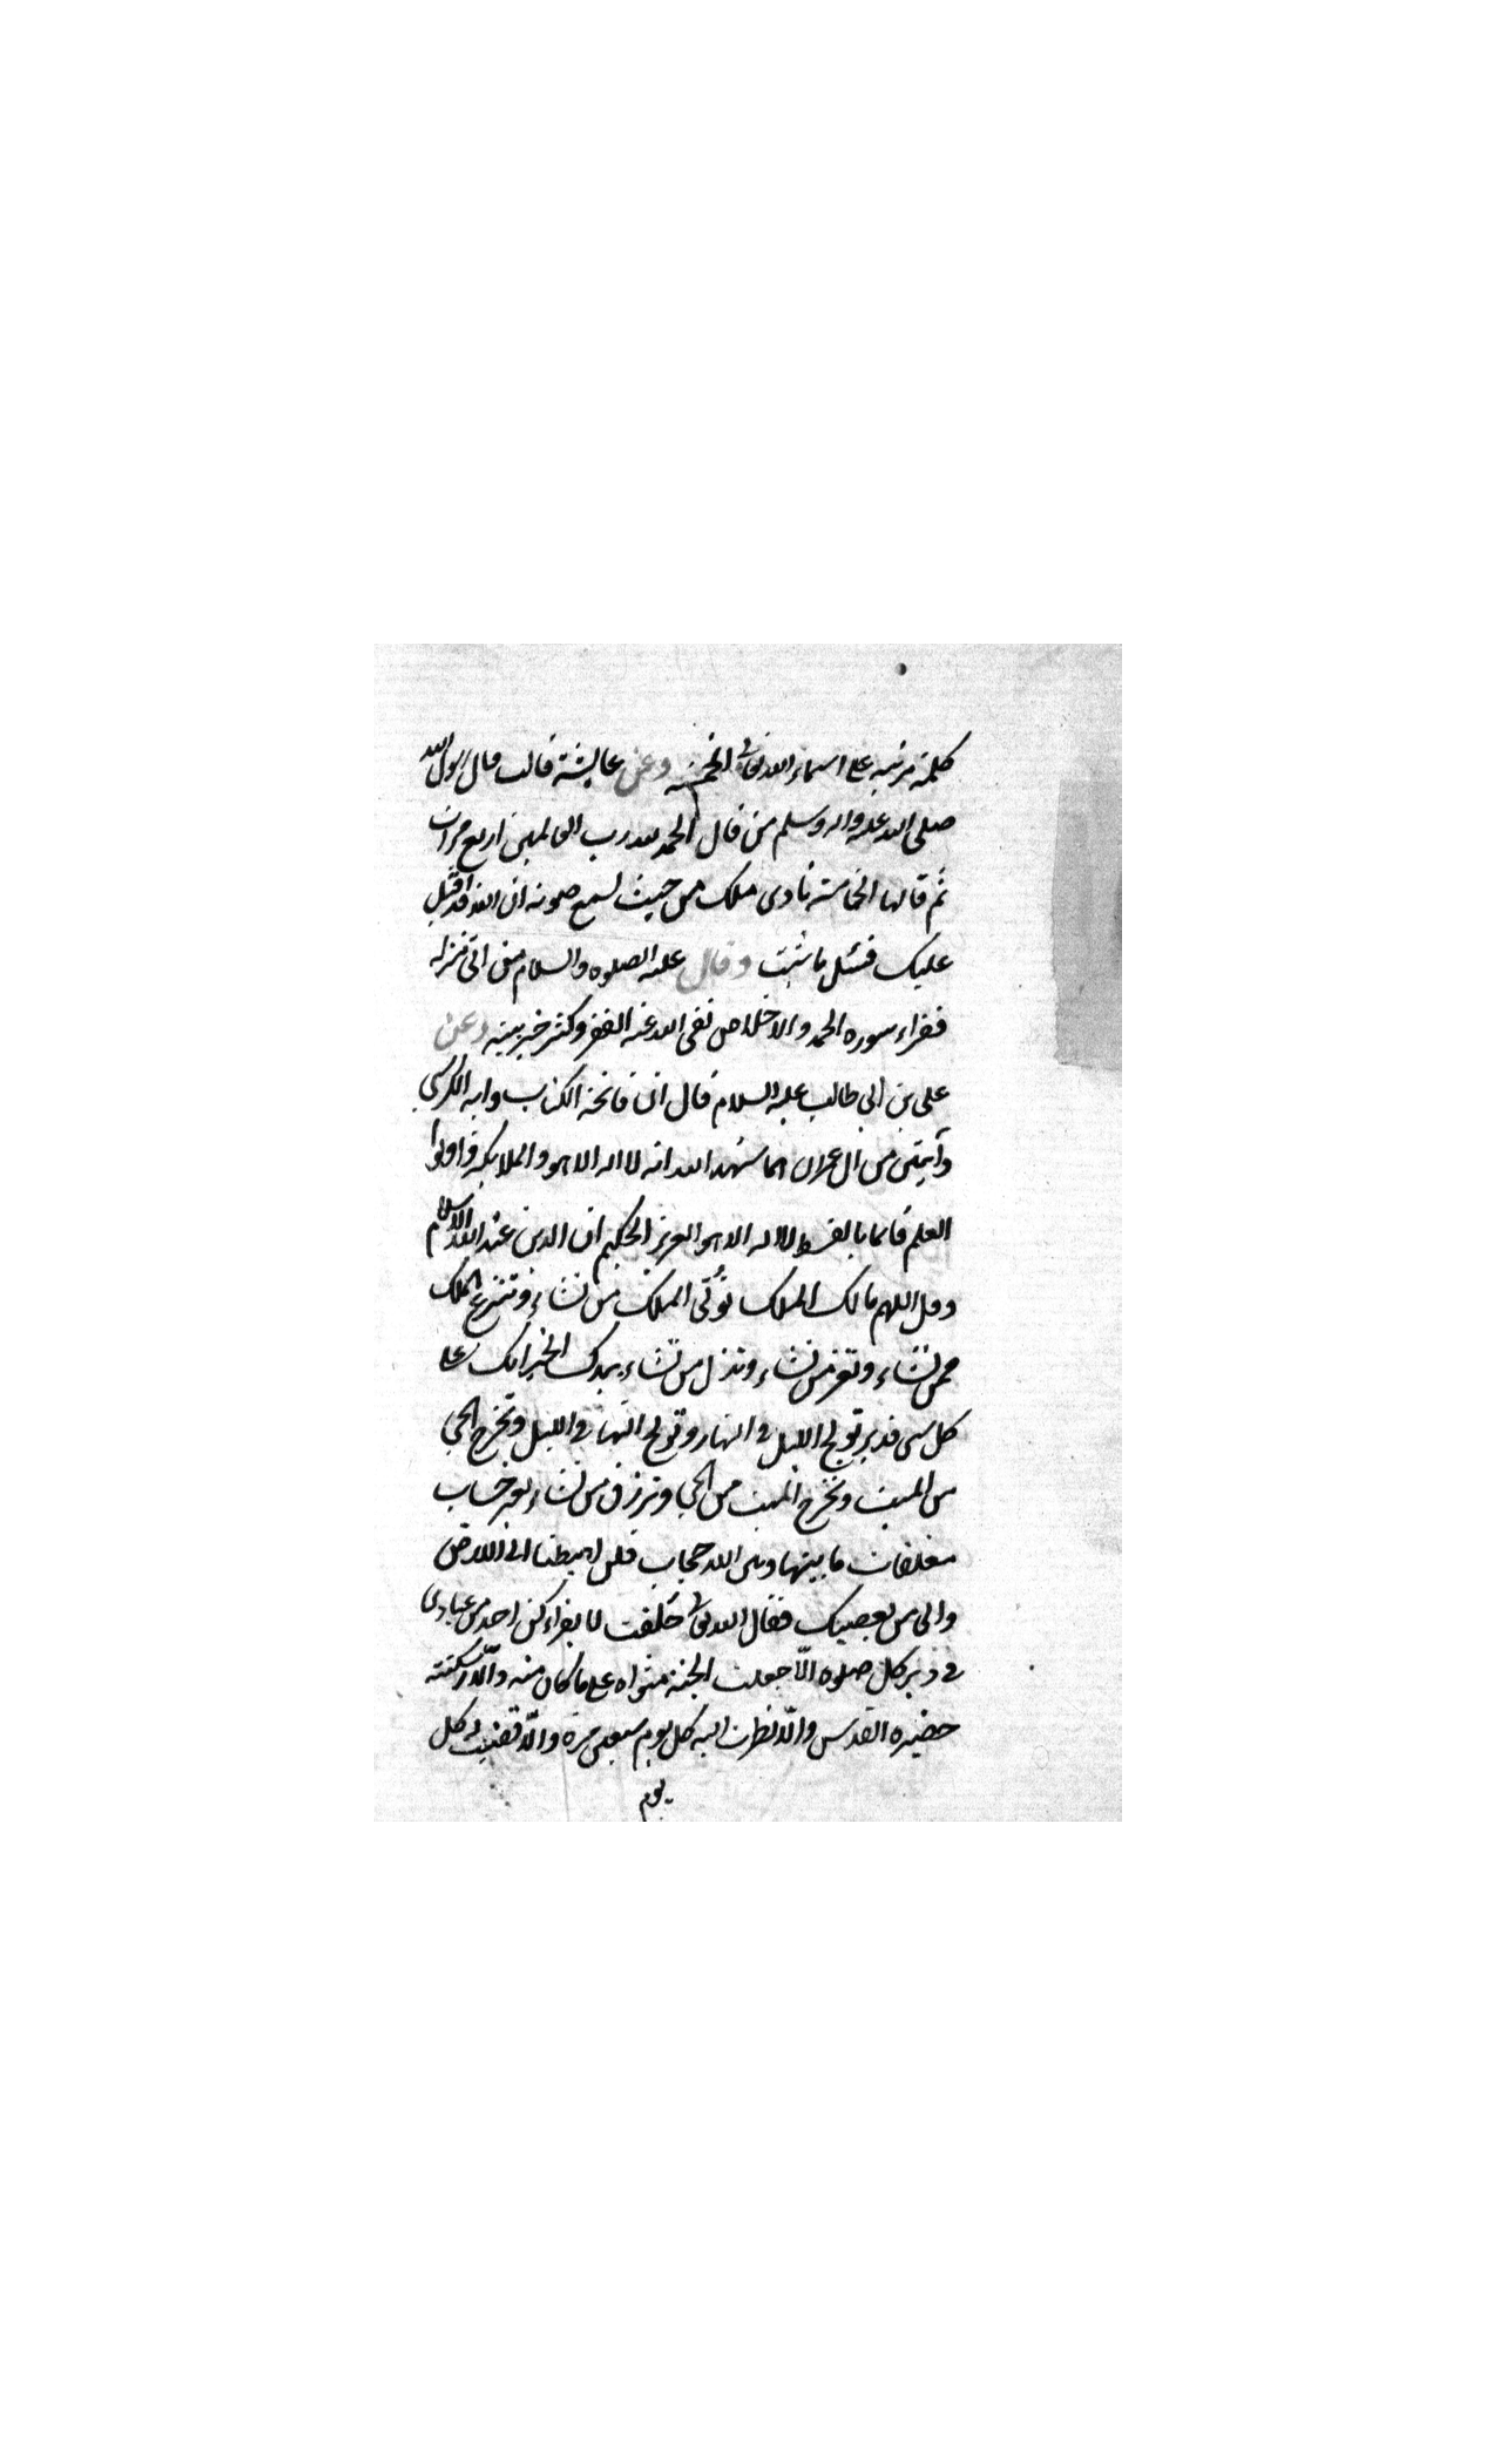 كلمة مرتبه على اسماء الله تعالى الخمسه وعن عايشة قالت قال رسول الله
صلى الله عليه واله وسلم من قال الحمد لله رب العالمين اربع مرات
ثم قالها الخامسة نادى ملك من حيث لسمع صوته ان الله قد اقبل
عليك فسئل ما شئت وقال عليه الصلوه والسلام من اتى منزله
فقراء سوره الحمد والاخلاص نفى الله عنه الفقر وكثر خير بيته وعن
على بن ابي طالب عليه السلام قال ان فاتحة الكتاب وايه الكرسي
وآيتين من ال عمران هما شهد الله انه لا اله الا هو والملايكة واولوا
العلم قائما بالقسط لا اله الا هو العزيز الحكيم ان الدين عند الله الاسلام
وقل اللهم مالك الملك تؤتى الملك من تشاء وتنزع الملك
ممن تشاء وتعز من تشاء وتذل من تشاء بيدك الخير انك على
كل شى قدير تولج الليل في النهار وتولج النهار في الليل وتخرج الحي
من الميت وتخرج الميت من الحي وترزق من تشاء بغير حساب
معلقات ما بينها وبين الله حجاب قلن اهبطنا الى الارض
والى من يعصيك فقال الله تعالى حلفت لا يقراءكن احد من عبادى
في دبر كل صلوه الّا جعلت الجنة مثواه على ما كان منه والّا اسكنته
حضيره القدس والّا نظرت اليه كل يوم سبعين مرة والّا قضيت له كل
يوم